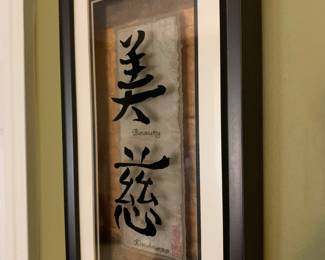 美
Beauty
慈
Kindness